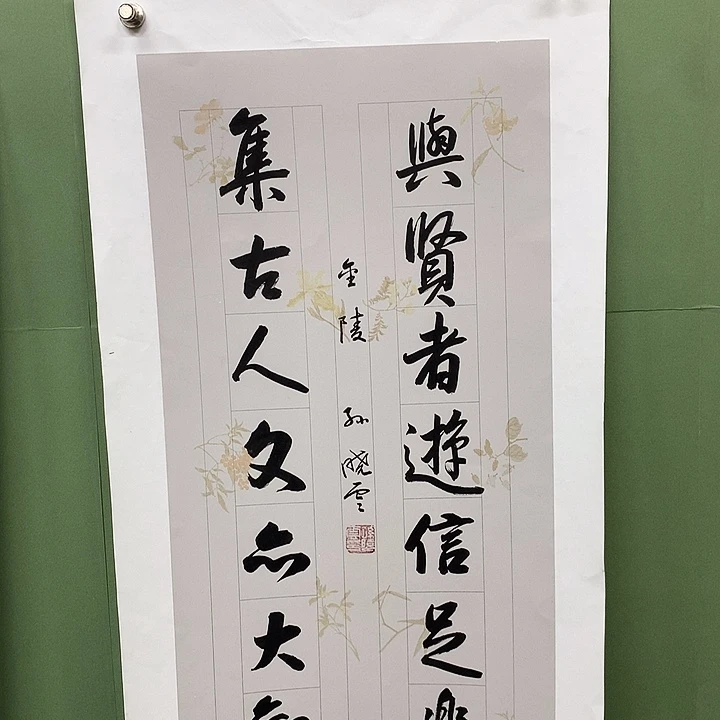 與賢者遊信足樂
集古人文亦大觀
金陵 孫曉雲